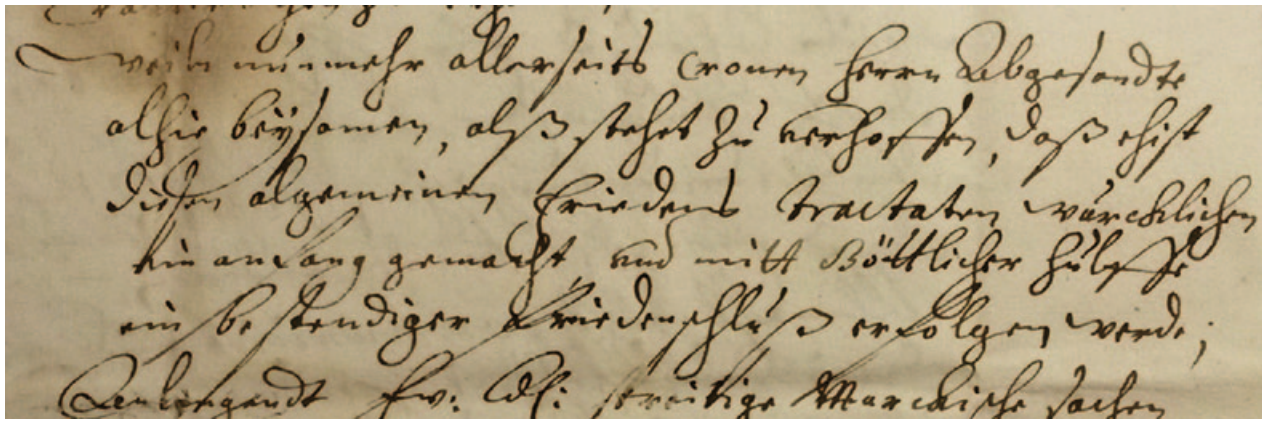 weiln nunmehr allerseits Cronen Herrn Abgesandte
alhie beysamen, alß stehet zu verhoffen, daß ehist
diesen algemeinen Friedens tractaten würcklichen
ein anfang gemacht und mitt Göttlicher hülffe
ein bestendiger Friedenschluß erfolgen werde;
Anlangendt Ew: Edl: streitige Marckische sachen